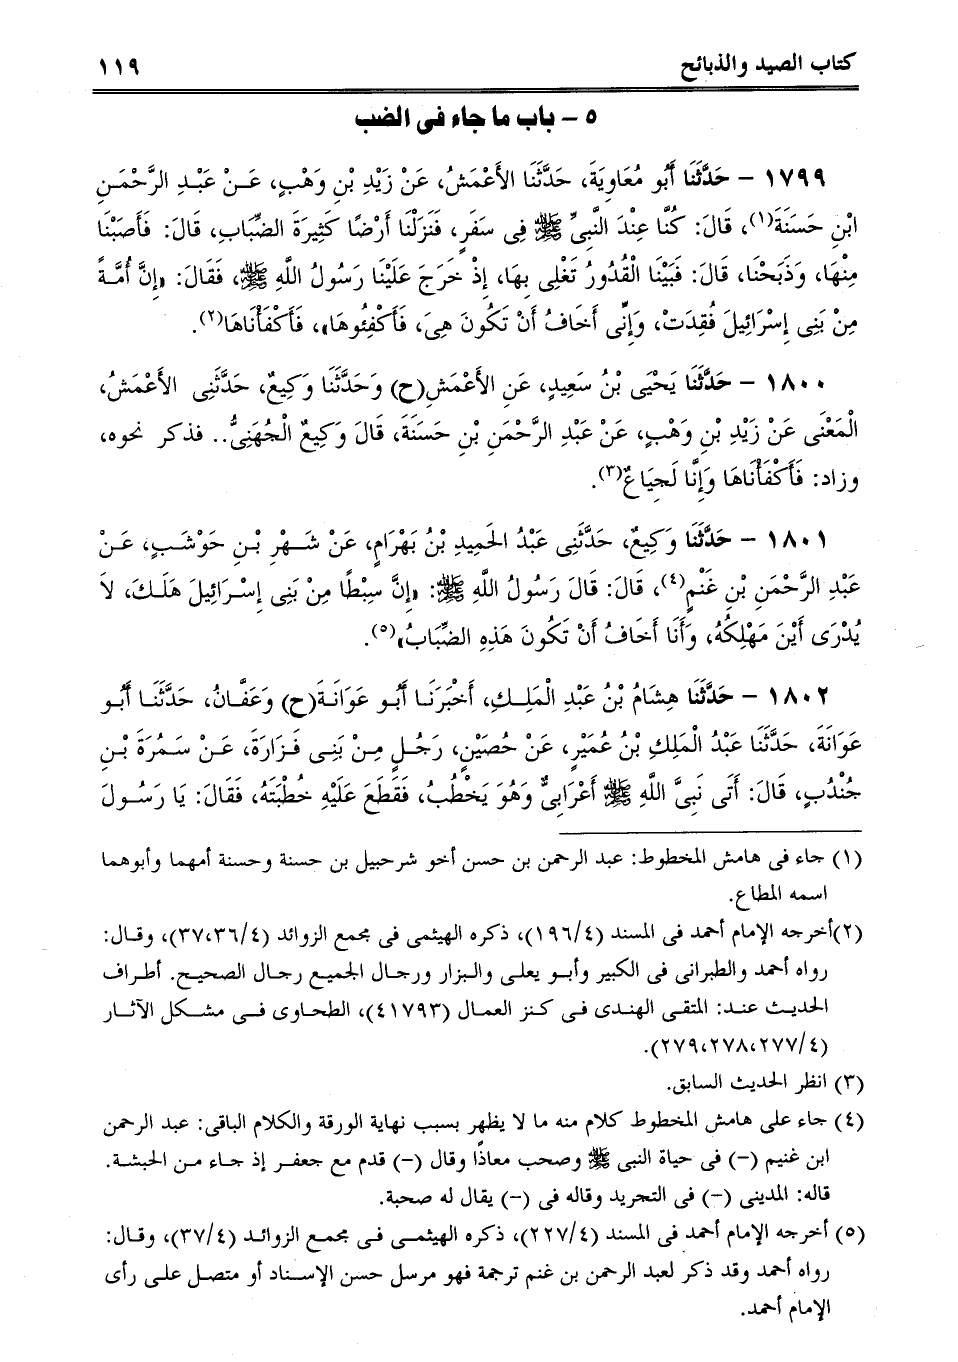 كتاب الصيد والذبائح ١١٩
٥ - باب ما جاء فى الضب
١٧٩٩ - حَدَّثَنَا أَبُو مُعَاوِيَةَ، حَدَّثَنَا الأَعْمَشُ، عَنْ زَيْدِ بْنِ وَهْبٍ، عَـنْ عَبْـدِ الرَّحْمَـنِ
ابْنِ حَسَنَةَ(١)، قَالَ: كُنَّا عِنْدَ النَّبِىِّ ﷺ فِى سَفَرٍ، فَنَزَلْنَا أَرْضًا كَثِيرَةَ الضِّبَابِ، قَالَ: فَأَصَبْنَا
مِنْهَا، وَذَبَحْنَا، قَالَ: فَبَيْنَا الْقُدُورُ تَغْلِى بِهَا، إِذْ خَرَجَ عَلَيْنَا رَسُولُ اللَّهِ ﷺ، فَقَالَ: «إِنَّ أُمَّـةً
مِنْ بَنِى إِسْرَائِيلَ فُقِدَتْ، وَإِنِّى أَخَافُ أَنْ تَكُونَ هِىَ، فَأَكْفِئُوهَا»، فَأَكْفَأْنَاهَا(٢).
١٨٠٠ - حَدَّثَنَا يَحْيَى بْنُ سَعِيدٍ، عَنِ الأَعْمَشِ(ح) وَحَدَّثَنَا وَكِيعٌ، حَدَّثَنِى الأَعْمَشُ،
الْمَعْنَى عَنْ زَيْدِ بْنِ وَهْبٍ، عَنْ عَبْدِ الرَّحْمَنِ بْنِ حَسَنَةَ، قَالَ وَكِيعٌ الْجُهَنِىُّ.. فذكر نحوه،
وزاد: فَأَكْفَأْنَاهَا وَإِنَّا لَجِيَاعٌ(٣).
١٨٠١ - حَدَّثَنَا وَكِيعٌ، حَدَّثَنِى عَبْدُ الْحَمِيدِ بْنُ بَهْرَامٍ، عَنْ شَـهْرِ بْـنِ حَوْشَـبٍ، عَـنْ
عَبْدِ الرَّحْمَنِ بْنِ غَنْمٍ(٤)، قَالَ: قَالَ رَسُولُ اللَّهِ ﷺ: «إِنَّ سِبْطًا مِنْ بَنِى إِسْـرَائِيلَ هَلَـكَ، لاَ
يُدْرَى أَيْنَ مَهْلِكُهُ، وَأَنَا أَخَافُ أَنْ تَكُونَ هَذِهِ الضِّبَابُ»(٥).
١٨٠٢ - حَدَّثَنَا هِشَامُ بْنُ عَبْدِ الْمَلِـكِ، أَخْبَرَنَـا أَبُـو عَوَانَـةَ(ح) وَعَفَّـانُ، حَدَّثَنَـا أَبُو
عَوَانَةَ، حَدَّثَنَا عَبْدُ الْمَلِكِ بْنُ عُمَيْرٍ، عَنْ حُصَيْنٍ، رَجُـلٍ مِـنْ بَنِـى فَـزَارَةَ، عَـنْ سَـمُرَةَ بْـنِ
جُنْدُبٍ، قَالَ: أَتَى نَبِىَّ اللَّهِ ﷺ أَعْرَابِىٌّ وَهُوَ يَخْطُبُ، فَقَطَعَ عَلَيْهِ خُطْبَتَهُ، فَقَالَ: يَا رَسُولَ
(١) جاء فى هامش المخطوط: عبد الرحمن بن حسن أخو شرحبيل بن حسنة وحسنة أمهما وأبوهما
اسمه المطاع.
(٢)أخرجه الإمام أحمد فى المسند (١٩٦/٤)، ذكره الهيثمى فى مجمع الزوائد (٣٧،٣٦/٤)، وقـال:
رواه أحمد والطبرانى فى الكبير وأبـو يعلـى والـبزار ورجـال الجميع رجـال الصحيح. أطـراف
الحديـث عنـد: المتقـى الهنـدى فـى كـنز العمـال (٤١٧٩٣)، الطحـاوى فـى مشـكل الآثـار
(٢٧٩،٢٧٨،٢٧٧/٤).
(٣) انظر الحديث السابق.
(٤) جاء على هامش المخطوط كلام منه ما لا يظهر بسبب نهاية الورقة والكلام الباقى: عبد الرحمن
ابن غنيم (-) فى حياة النبى ﷺ وصحب معاذًا وقال (-) قدم مع جعفـر إذ جـاء مـن الحبشـة.
قاله: المدينى (-) فى التجريد وقاله فى (-) يقال له صحبة.
(٥) أخرجه الإمام أحمد فى المسند (٢٢٧/٤)، ذكره الهيثمـى فـى مجمـع الزوائـد (٣٧/٤)، وقال:
رواه أحمد وقد ذكر لعبد الرحمن بن غنم ترجمة فهو مرسل حسن الإسـناد أو متصـل علـى رأى
الإمام أحمد.